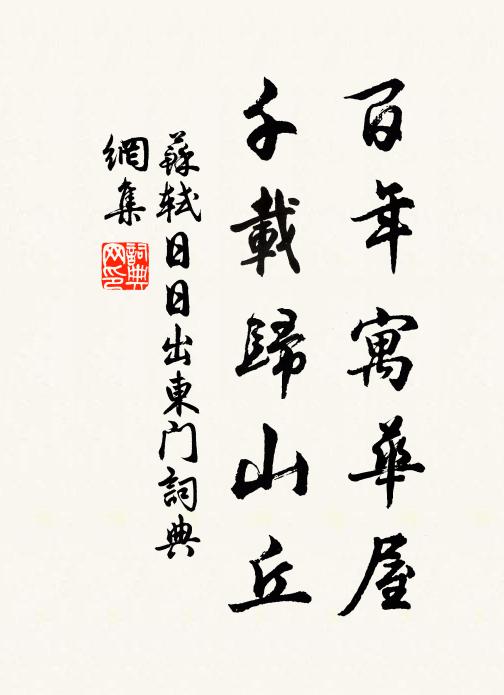 百年寓華屋
千載歸山丘
蘇軾日日出東門詞典
網集
詞典
网印